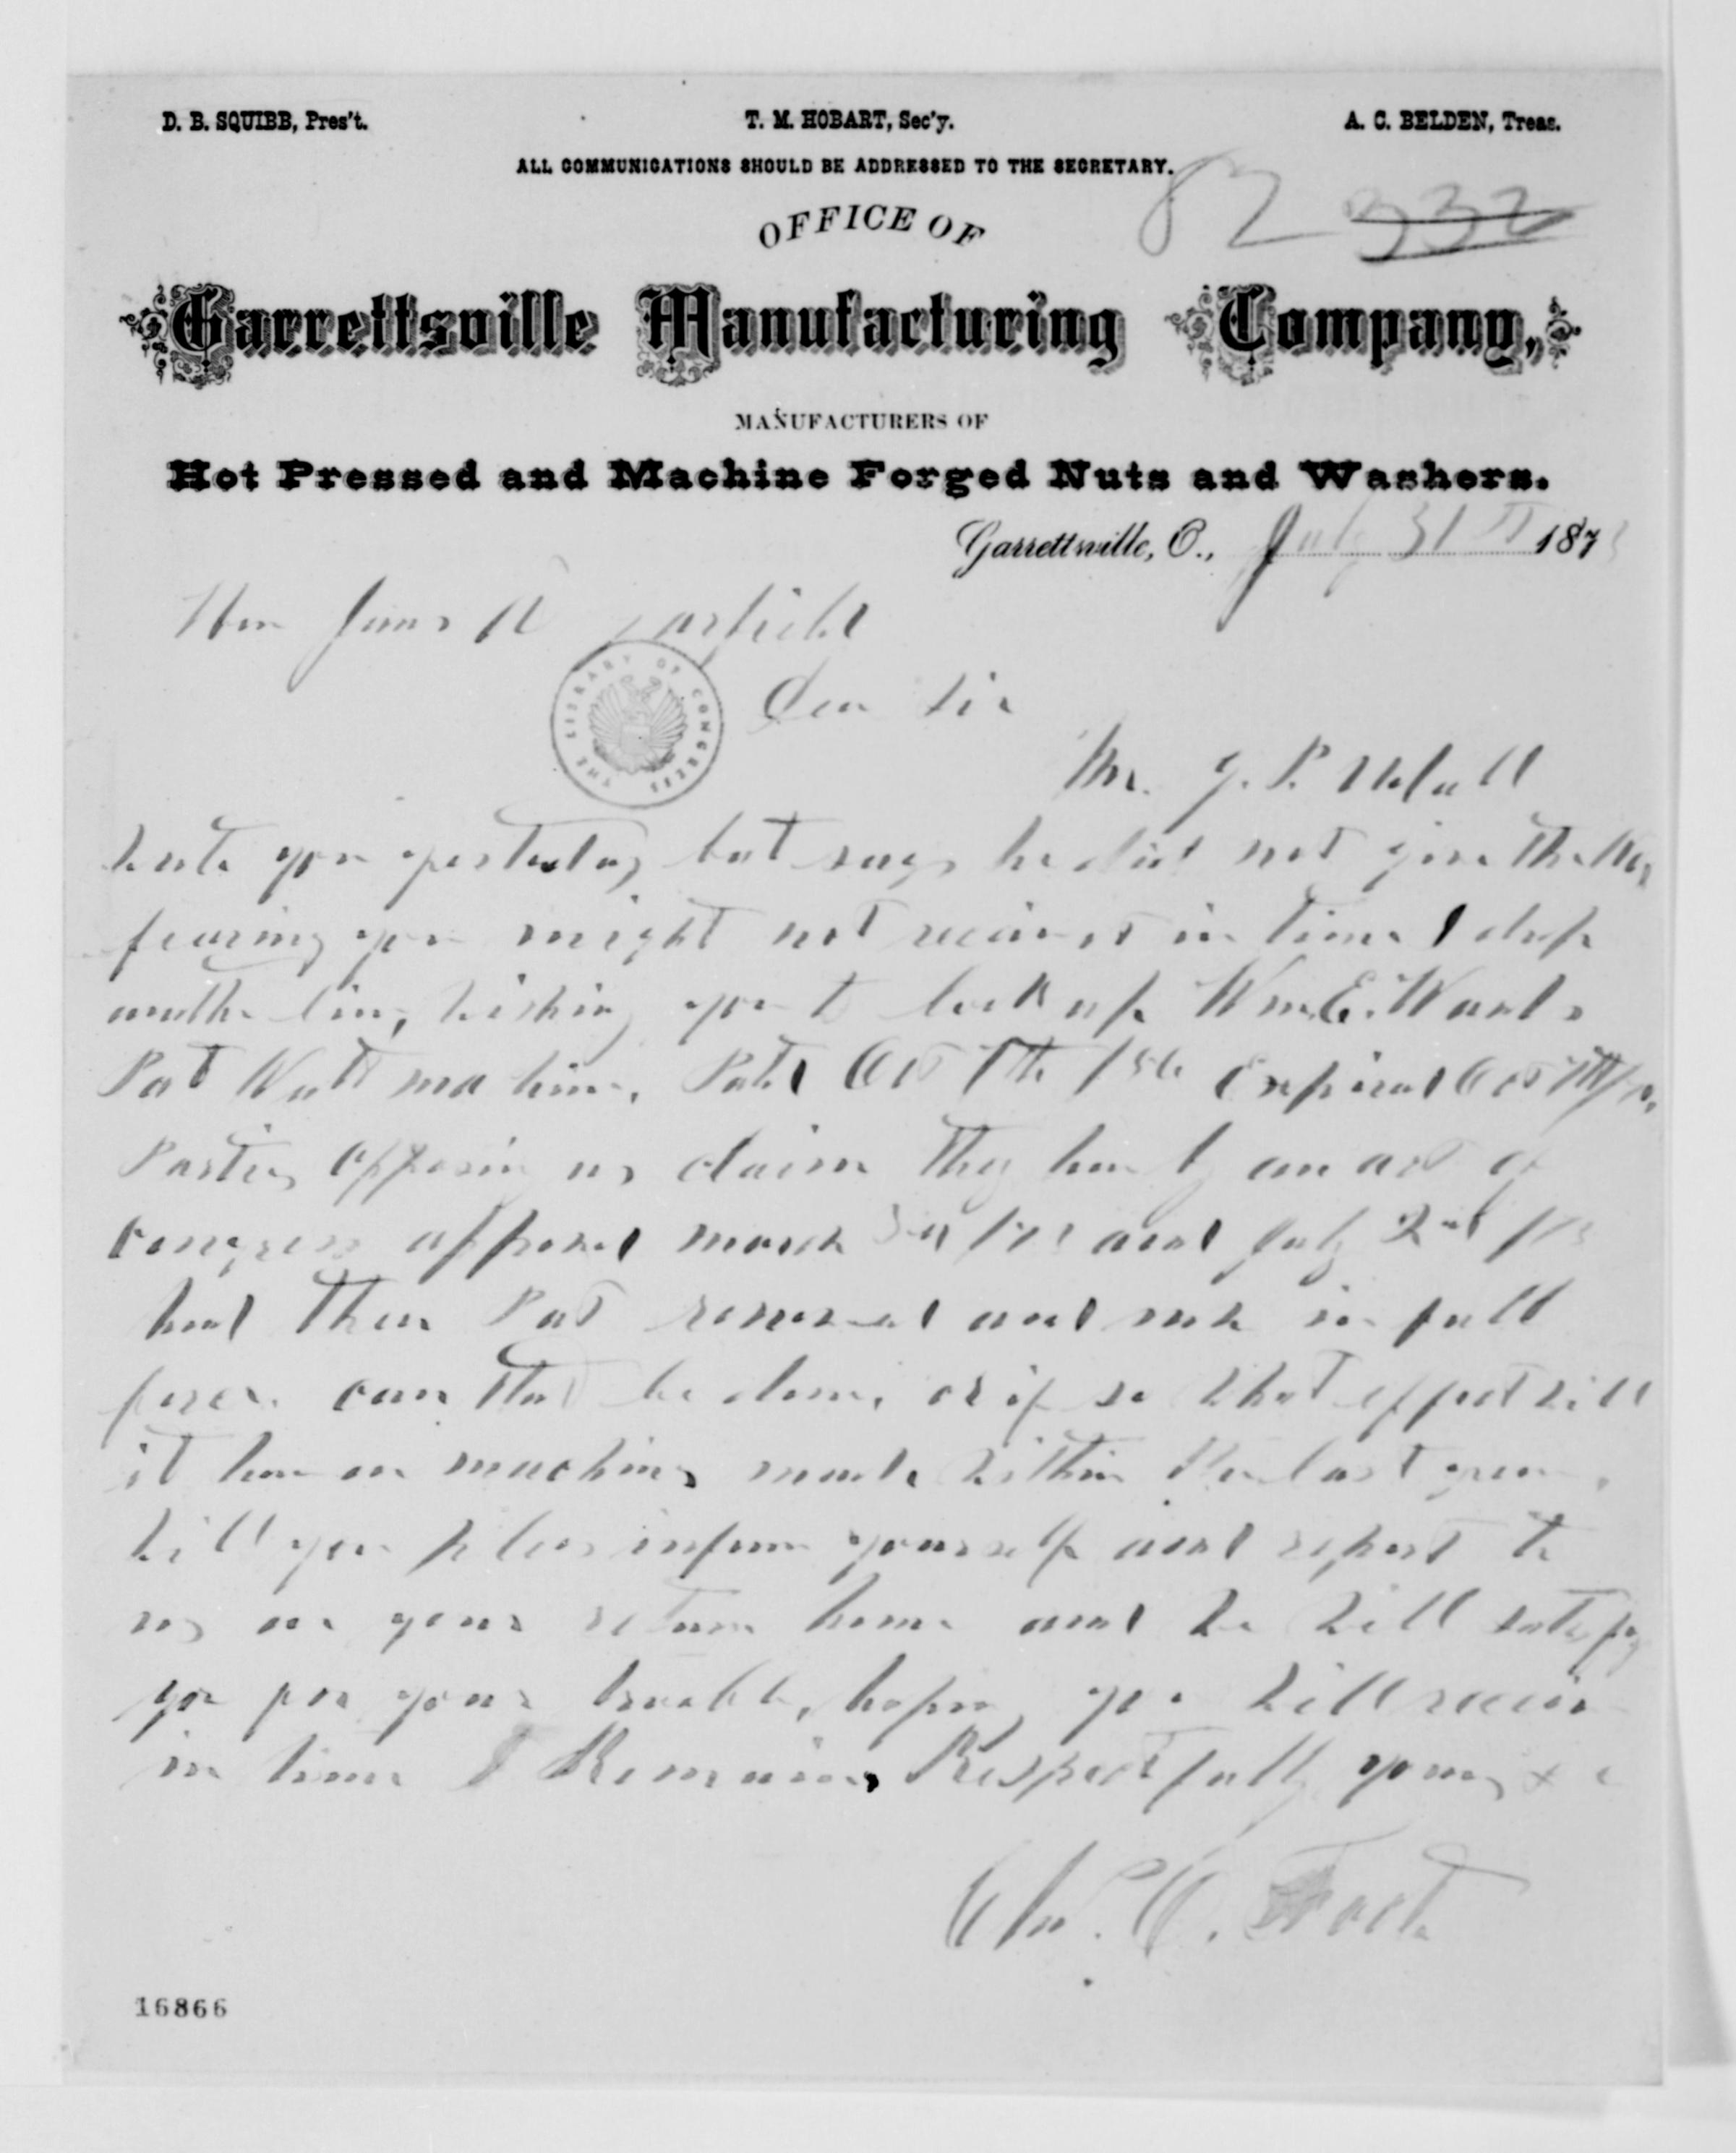 D. B. SQUIBB, Pres't. T. M. HOBART, Sec'y. A. C. BELDEN, Treas.
ALL COMMUNICATIONS SHOULD BE ADDRESSED TO THE SECRETARY.
82 332
OFFICE OF
Garrettsville Manufacturing Company,
MANUFACTURERS OF
Hot Pressed and Machine Forged Nuts and Washers.
Garrettsville, O., July 31st 187
Hon James A Garfield
THE LIBRARY OF CONGRESS
Dear Sir
Mr. J. P.
wrote you yesterday but says he did not give the
fearing you might not receive it in time I drop
another line, wishing you to look up Wm. E. Wards
Pat Nutt machine, Patd Oct 7th Expired Oct
Parties opposing us claim they have by an act of
congress approved march and July 2nd
had their Pat renewed and now in full
force. can that be done, or if so what effect will
it have on machines made within the last year,
Will you pleas inform yourself and report to
us on your return home and we will satisfy
you for your trouble, hoping you will receive
in time I Remain, Respectfully yours &c
16866